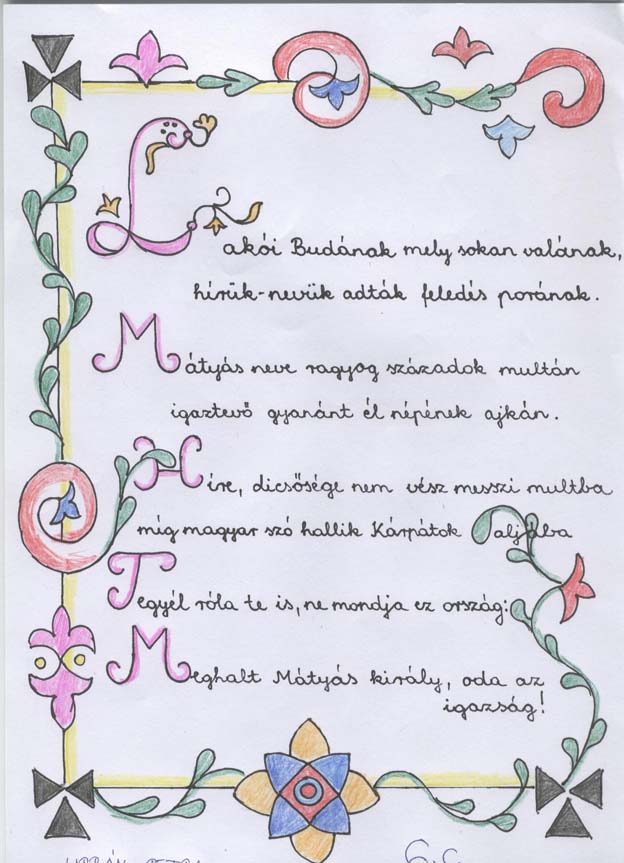 Lakói Budának mely sokan valának,
hírük-nevük adták feledés porának.
Mátyás neve ragyog századok multán
igaztevő gyanánt él népének ajkán.
Híre, dicsősége nem vész messzi multba
míg magyar szó hallik Kárpátok aljába
Tegyél róla te is, ne mondja ez ország:
Meghalt Mátyás király, oda az
igazság!